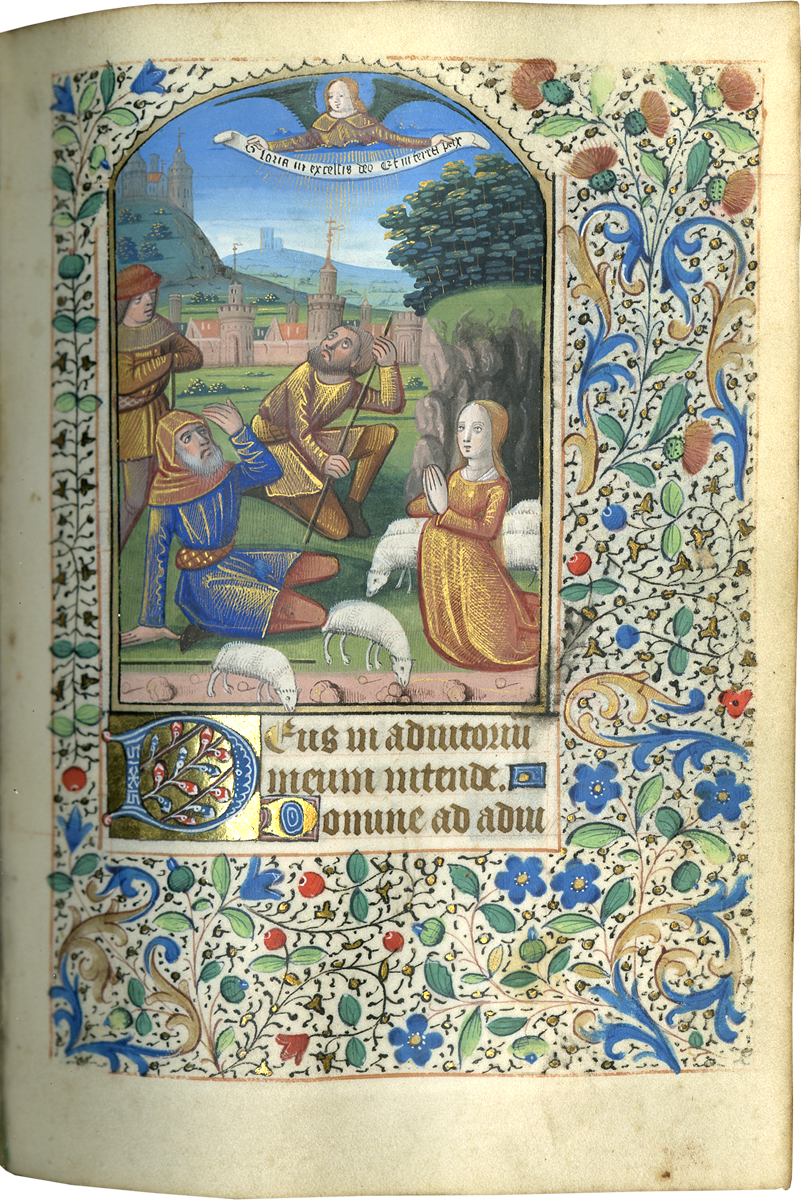 Gloria in excelsis deo Et in terra pax
Deus in adiutoriū
meum intende.
Domine ad adiu